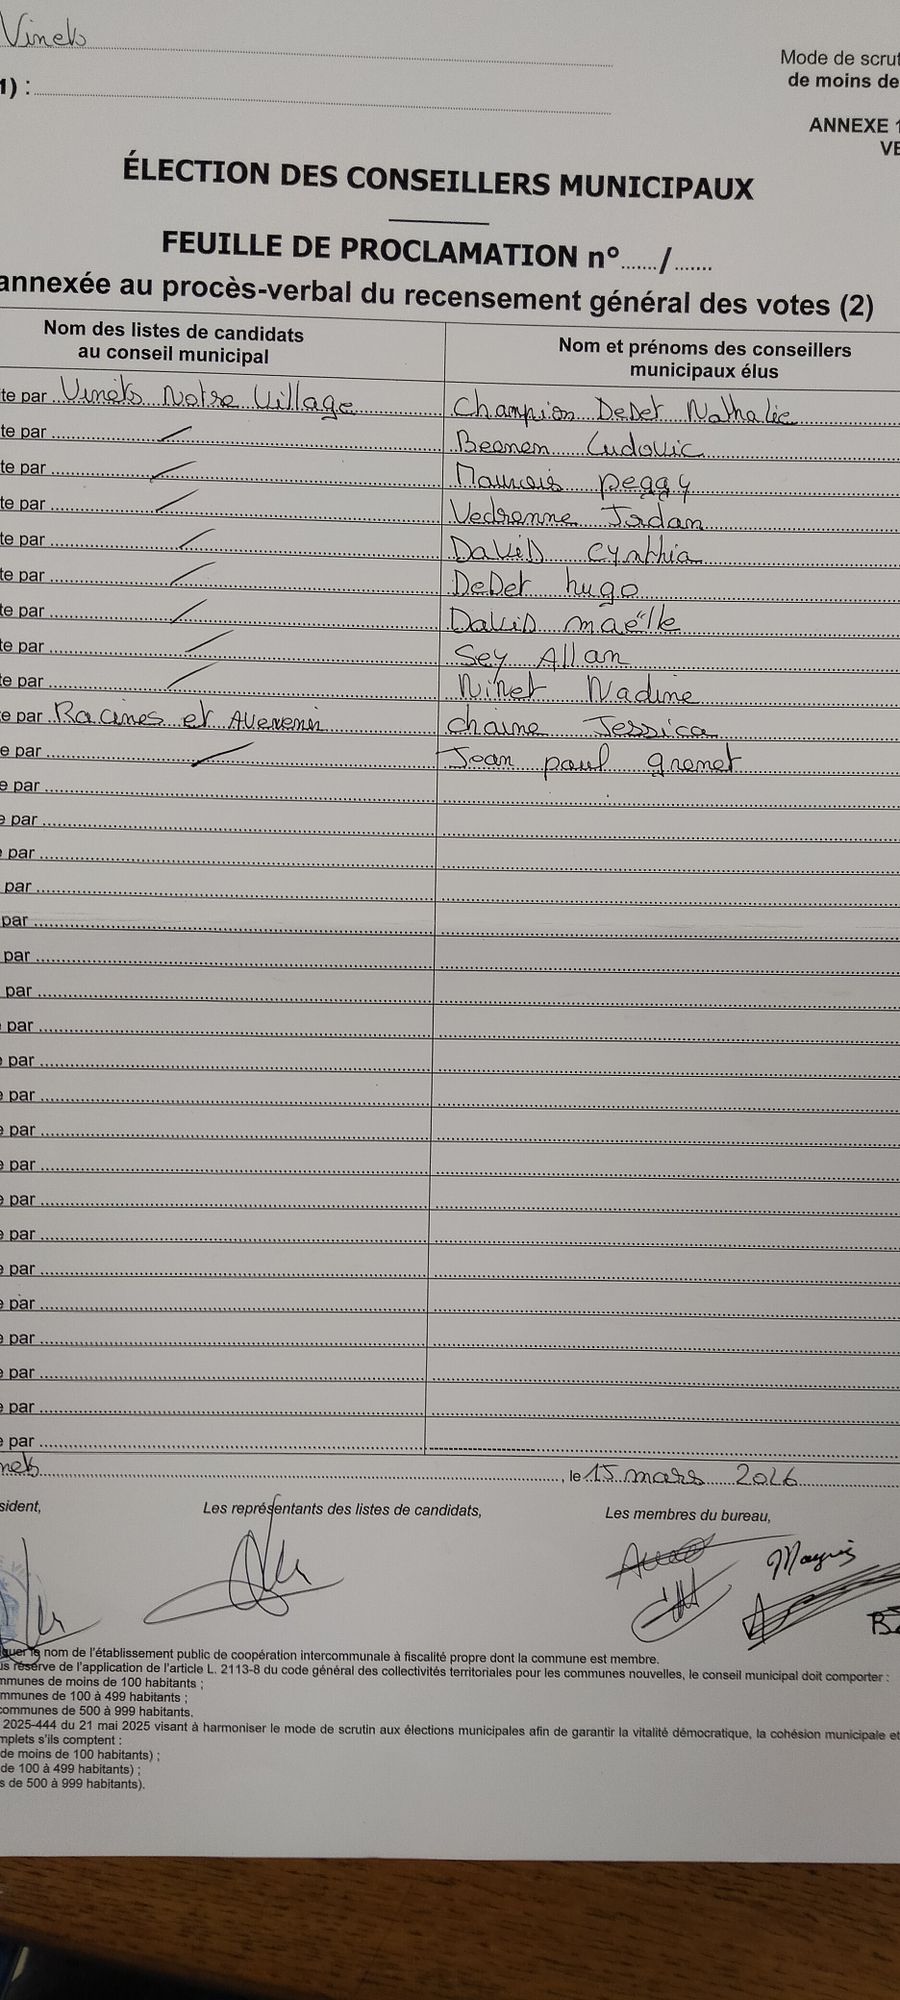 Vinets
Mode de scrut
1) :
de moins de
ANNEXE 1
VE
ÉLECTION DES CONSEILLERS MUNICIPAUX
FEUILLE DE PROCLAMATION n°....../.......
annexée au procès-verbal du recensement général des votes (2)
Nom des listes de candidats au conseil municipal
Nom et prénoms des conseillers municipaux élus
te par Vinets Notre Village Champion DeDet Nathalie
te par Ludovic
te par Maurois peggy
te par Vedrenne Jordan
te par DaviD Cynthia
te par DeDet hugo
te par DaviD maëlle
te par Sey Allan
te par Ninet Nadine
te par Racines et Avenenir chaine Jessica
e par Jean paul grenet
e par
e par
par
par
par
par
par
e par
e par
e par
e par
e par
e par
e par
e par
e par
e par
e par
e par
e par
nets, le 15 mars 2026
sident,
Les représentants des listes de candidats,
Les membres du bureau,
quer le nom de l'établissement public de coopération intercommunale à fiscalité propre dont la commune est membre.
us réserve de l'application de l'article L. 2113-8 du code général des collectivités territoriales pour les communes nouvelles, le conseil municipal doit comporter :
mmunes de moins de 100 habitants ;
mmunes de 100 à 499 habitants ;
communes de 500 à 999 habitants.
2025-444 du 21 mai 2025 visant à harmoniser le mode de scrutin aux élections municipales afin de garantir la vitalité démocratique, la cohésion municipale et
mplets s'ils comptent :
de moins de 100 habitants) ;
de 100 à 499 habitants) ;
s de 500 à 999 habitants).